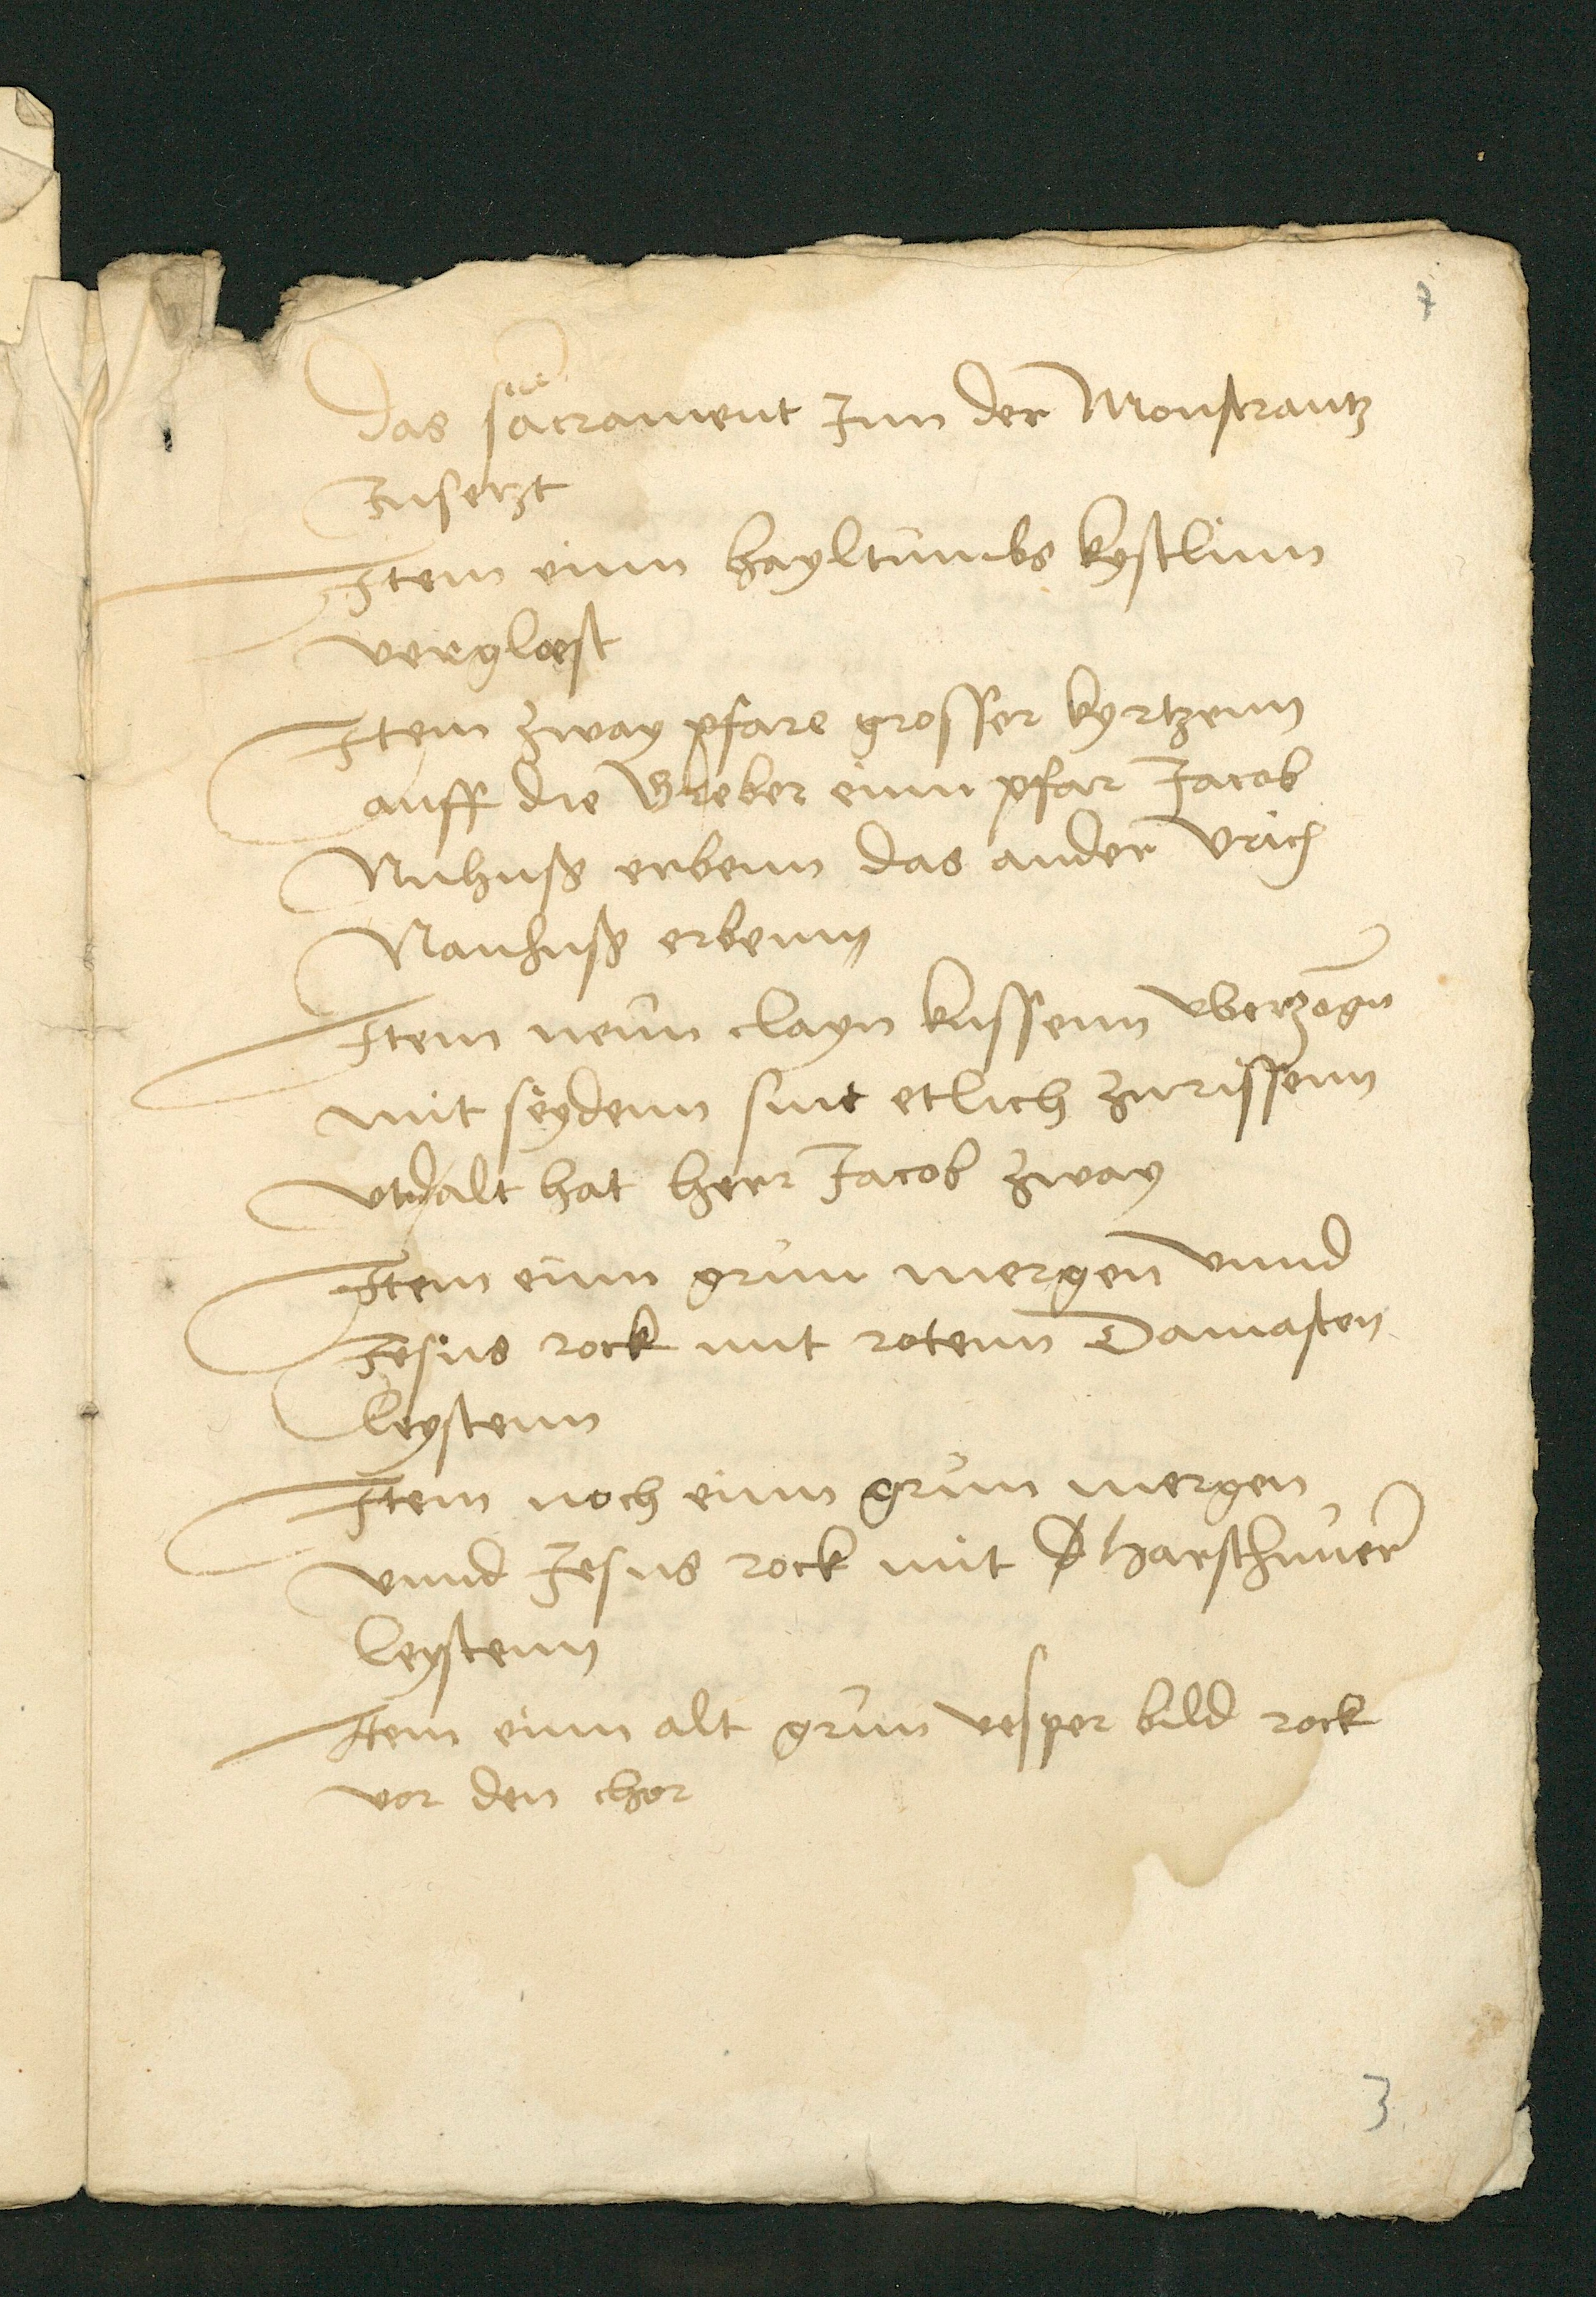 7
das sacrament Inn der Monstrantz
Inserzt
Item einn hayltumbs kystlinn
vergloest
Item zway pfare grosser kyrtzenn
auff die Greber einn pfar Jacob
Nuhuss erbenn das ander Vrich
Nauhuss erbenn
Item neun clayn kussenn vberzogn
mit seydenn sint etlich zurissenn
vnd alt hat herr Jacob zway
Item einn grun mergen vnnd
Jesus rock mit rotenn Damasten
leystenn
Item noch einn grun mergen
vnnd Jesus rock mit
leystenn
Item einn alt grun vesper bild rock
vor den chor
3